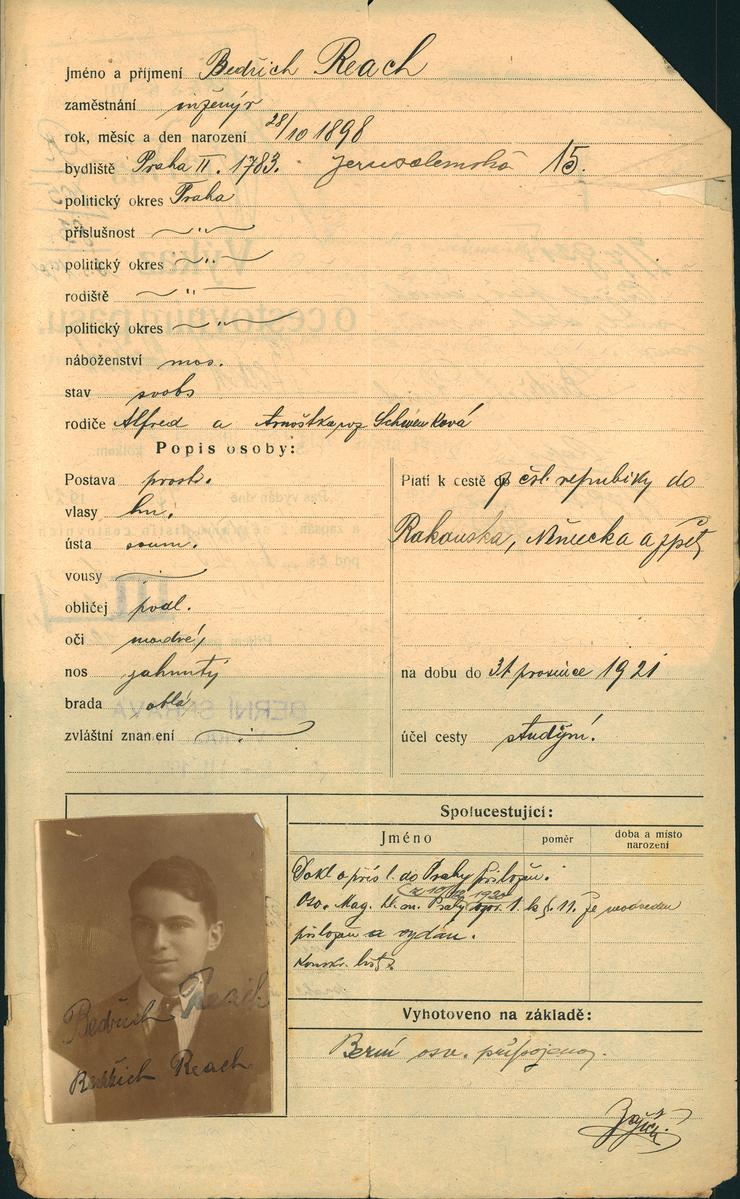 jméno a příjmení Bedřich Reach
zaměstnání inženýr
rok, měsíc a den narození 28/10 1898
bydliště Praha II. 1783. Jerusalemská 15.
politický okres Praha
příslušnost — " —
politický okres — " —
rodiště — " —
politický okres — " —
náboženství mos.
stav svob
rodiče Alfred a Arnoštka roz Schwenková
Popis osoby:
Postava prostř.
vlasy hn.
ústa soum.
vousy
obličej podl.
oči modré,
nos zahnutý
brada oblá
zvláštní znamení
Platí k cestě z čsl. republiky do
Rakouska, Německa a zpět
na dobu do 31 prosince 1921
účel cesty studijní.
Spolucestující:
Jméno
poměr
doba a místo narození
Dokl o přísl. do Prahy přiložen.
Mag. hl. m. Prahy
přiložen a vydán.
Konskr. list
Vyhotoveno na základě:
Berní osv. připojeno.
Bedřich Reach
Bedřich Reach
Výkaz
o cestovním pasu.
BERNÍ SPRÁVA